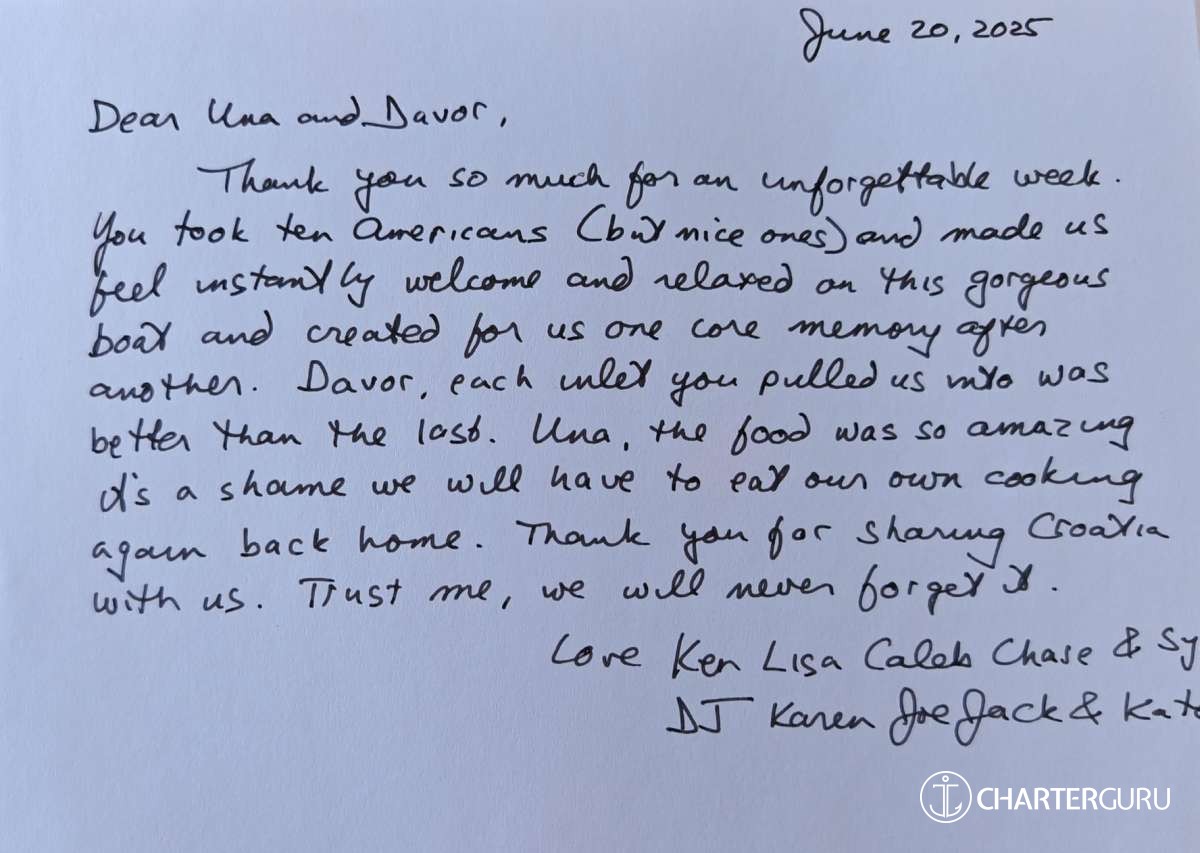 June 20, 2025
Dear Una and Davor,
Thank you so much for an unforgettable week.
You took ten Americans (but nice ones) and made us
feel instantly welcome and relaxed on this gorgeous
boat and created for us one core memory after
another. Davor, each inlet you pulled us into was
better than the last. Una, the food was so amazing
it's a shame we will have to eat our own cooking
again back home. Thank you for sharing Croatia
with us. Trust me, we will never forget it.
Love Ken Lisa Caleb Chase & Sy
DJ Karen Joe Jack & Kate
CHARTERGURU